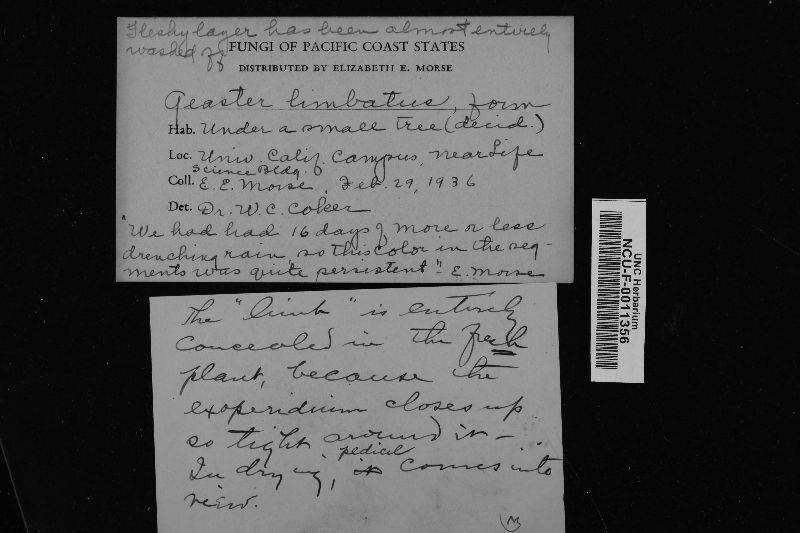 Fleshy layer has been almost entirely
washed off
FUNGI OF PACIFIC COAST STATES
DISTRIBUTED BY ELIZABETH E. MORSE
Geaster limbatus, form
Hab. Under a small tree (decid.)
Loc. Univ. Calif. Campus, near Life
Science Bldg.
Coll. E. E. Morse, Feb. 29, 1936
Det. Dr. W. C. Coker
"We had had 16 days of more or less
drenching rain, so this color in the seg-
ments was quite persistent" - E. Morse
The "limb" is entirely
concealed in the fresh
plant, because the
exoperidium closes up
so tight around it -
In drying, it pedicel comes into
view.
M
UNC Herbarium
NCU-F-0011356